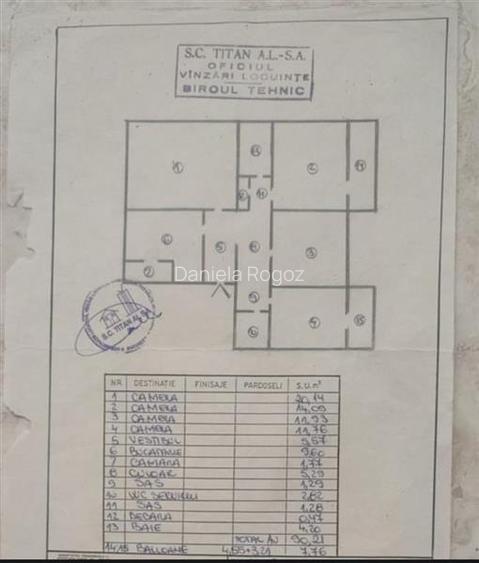 S.C. TITAN A.L.-S.A.
OFICIUL
VÎNZĂRI LOCUINȚE
BIROUL TEHNIC
13
1
2
14
12
11
6
5
8
3
7
Daniela Rogoz
9
S.C. TITAN AL SA
10
4
15
NR DESTINATIE FINISAJE PARDOSELI S.U.m²
1 CAMERA 20,14
2 CAMERA 14,09
3 CAMERA 11,93
4 CAMERA 11,76
5 VESTIBUL 9,67
6 BUCATARIE 9,60
7 CAMARA 1,77
8 CULOAR 5,29
9 SAS 1,29
10 WC SERVICIU 2,82
11 SAS 1,28
12 DEBARA 0,47
13 BAIE 4,20
TOTAL AN 90,21
14 15 BALCOANE 4,55+3,21 7,76